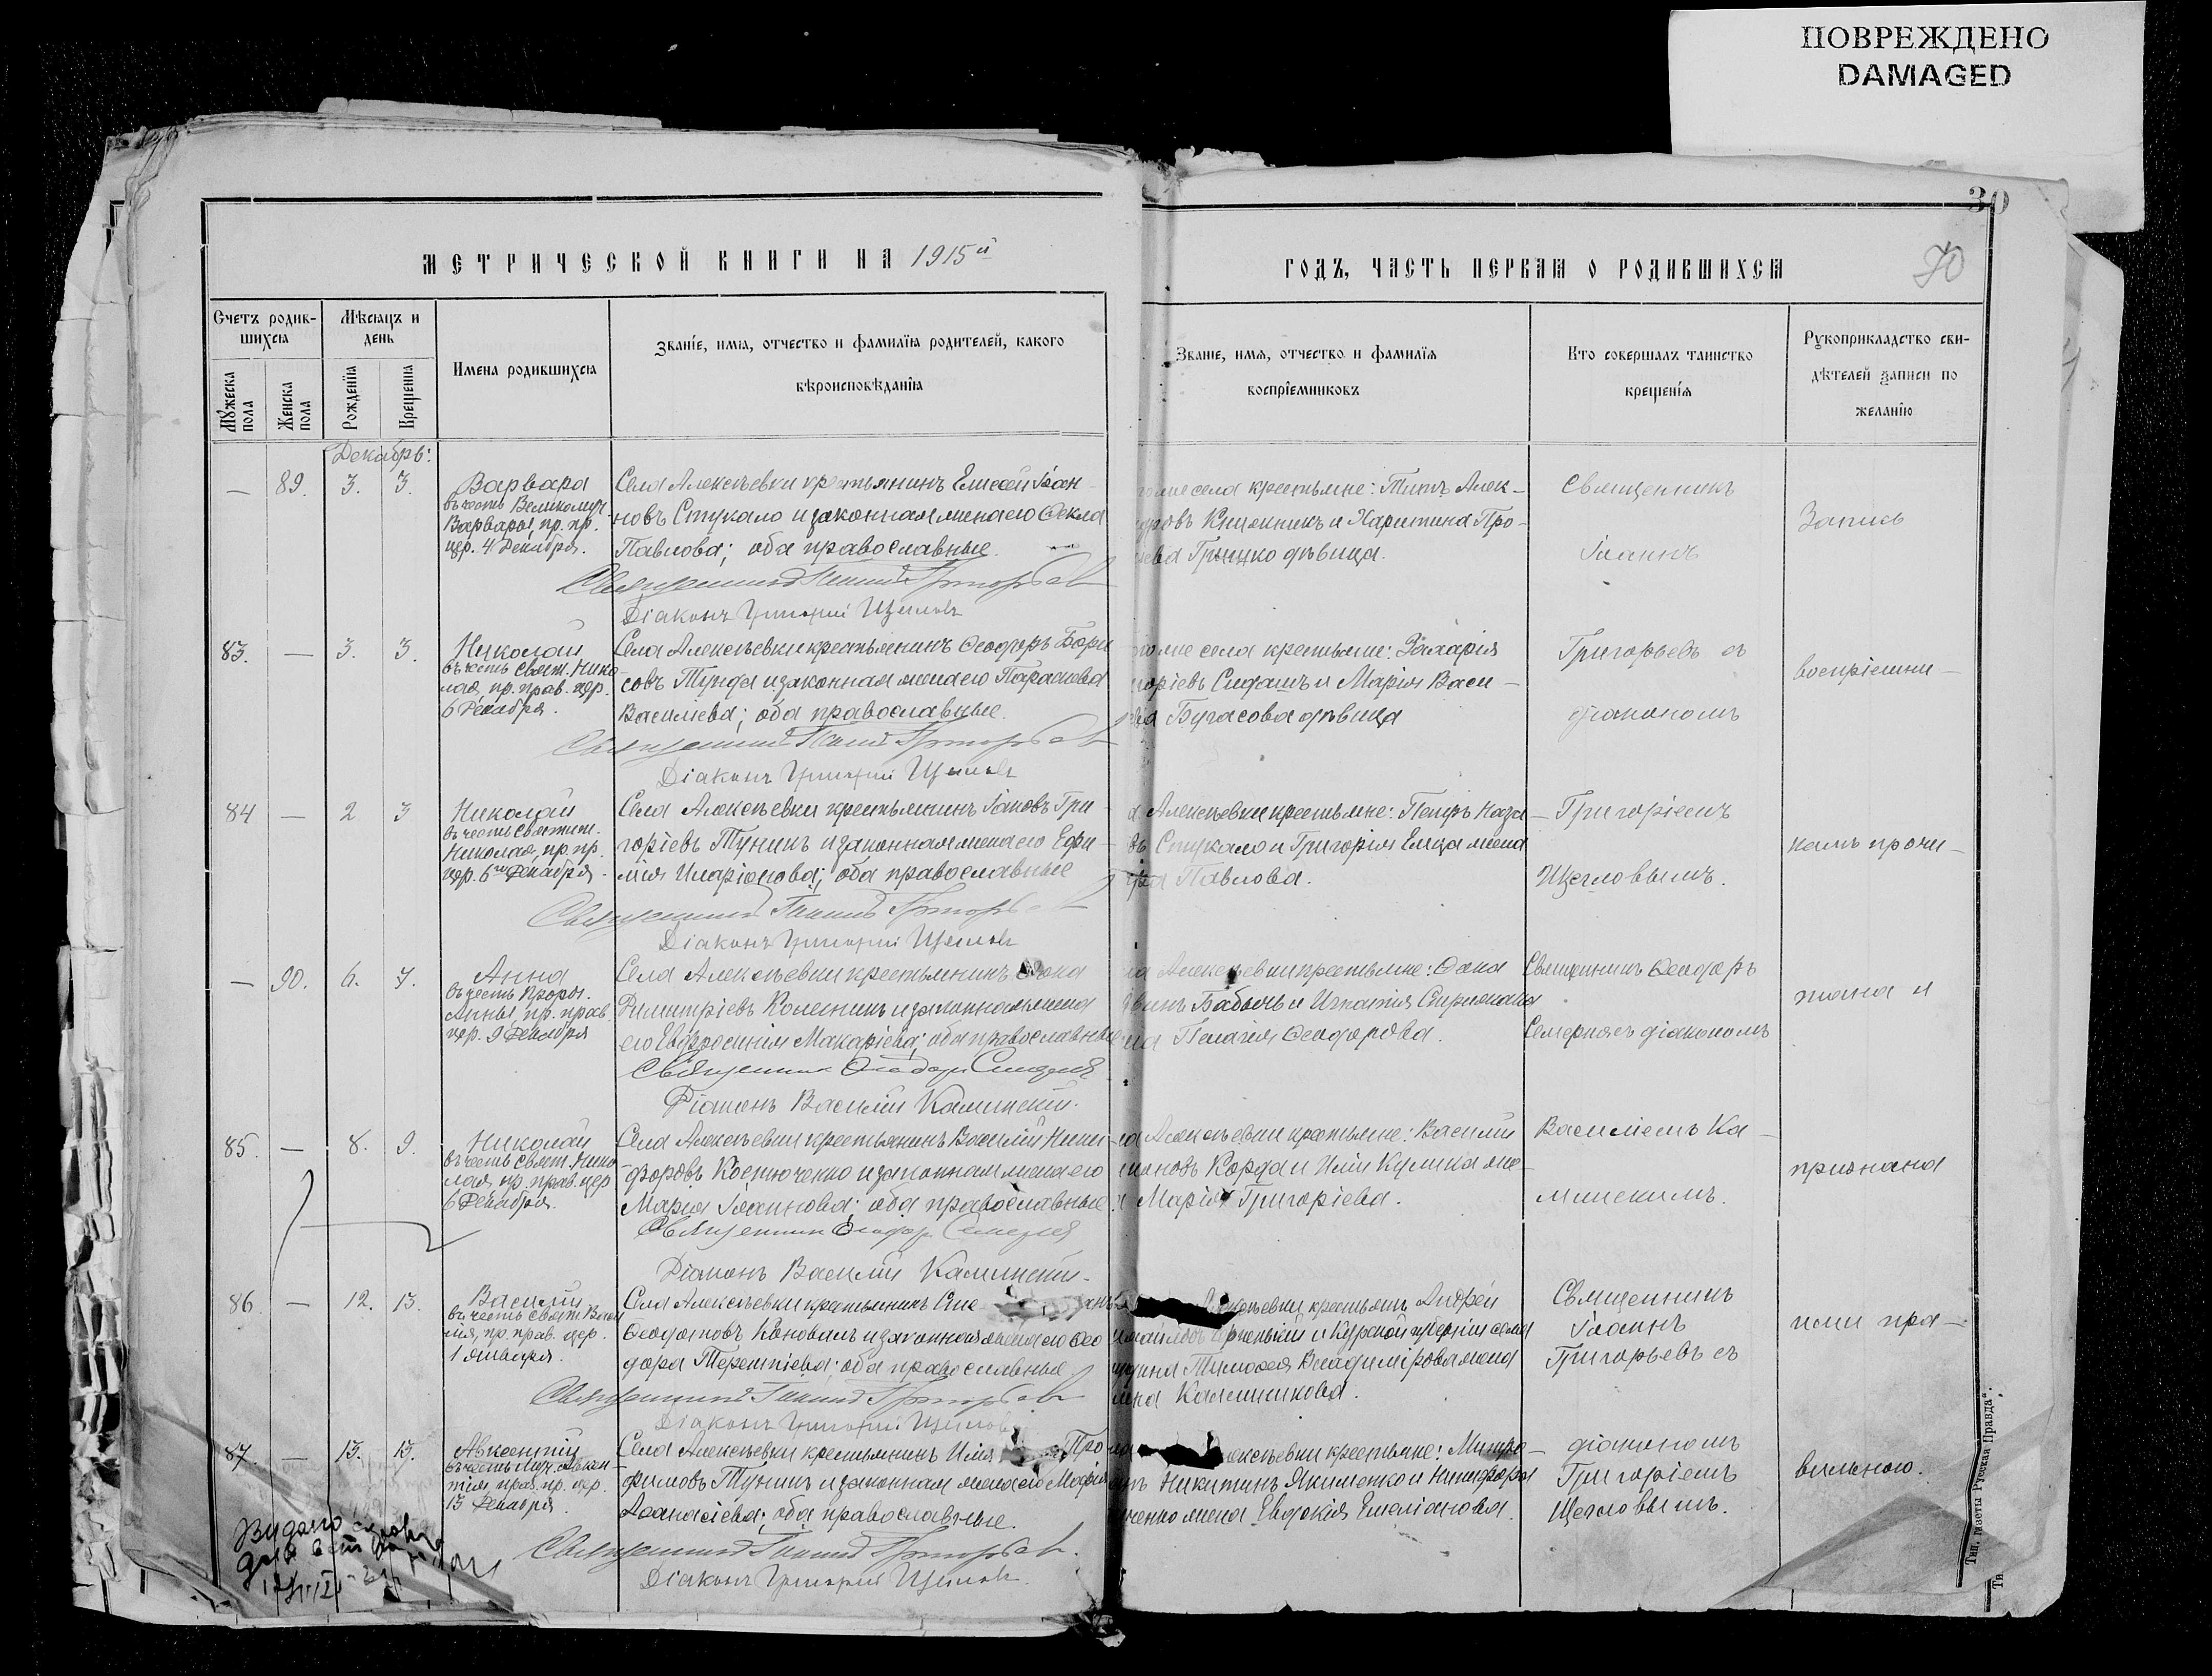 ПОВРЕЖДЕНО
DAMAGED
30
70
МЕТРИЧЕСКОЙ КНИГИ НА 1915й
ГОДЪ, ЧАСТЬ ПЕРВАЯ О РОДИВШИХСЯ
Счетъ родив-
шихся
Мужеска пола
Женска пола
Мѣсяцъ и
день
Рожденія
Крещенія
Имена родившихся
Званіе, имя, отчество и фамилія родителей, какого
вѣроисповѣданія
Званіе, имя, отчество и фамилія
воспріемниковъ
Кто совершалъ таинство
крещенія
Рукоприкладство сви-
дѣтелей записи по
желанію
Декабрь:
— 89. 3. 3.
Варвара
въ честь Великомуч.
Варвары, пр. пр.
цер. 4 Декабря.
Села Алексѣевки крестьянинъ Елисей Іоан-
новъ Стукало и законная жена его Ѳекла
Павлова; оба православные.
Священникъ Іоаннъ Григорьевъ
Діаконъ Григорій Щегловъ
села крестьяне: Титъ Алек-
Княжникъ и Харитина Про-
Гринко дѣвица.
Священникъ
Іоаннъ
Запись
83. — 3. 3.
Николай
въ честь Свят. Нико
лая, пр. прав. цер.
6 Декабря.
Села Алексѣевки крестьянинъ Ѳеодоръ Бори
совъ Тунда и законная жена его Параскева
Василіева; оба православные.
Священникъ Іоаннъ Григорьевъ
Діаконъ Григорій Щегловъ
села крестьяне: Захарія
Сидашъ и Марія Васи-
Бугасова дѣвица
Григорьевъ съ
діакономъ
воспріемни-
84 — 2 3
Николай
въ честь Святит.
Николая, пр. пр.
цер. 6го Декабря.
Села Алексѣевки крестьянинъ Іаковъ Гри-
горіевъ Туникъ и законная жена его Ефи-
мія Иларіонова; оба православные
Священникъ Іоаннъ Григорьевъ
Діаконъ Григорій Щегловъ
Алексѣевки крестьяне: Петръ Наза-
Стукало и Григорія Елца жена
Павлова.
Григоріемъ
Щегловымъ.
камъ прочи-
— 90. 6. 7.
Анна
въ честь Пророч.
Анны, пр. прав.
цер. 9 Декабря
Села Алексѣевки крестьянинъ
Димитріевъ Колесникъ и законная жена
его Евфросинія Макаріева; оба православные
Священникъ Ѳеодоръ Семерня
Діаконъ Василій Каминскій.
Алексѣевки крестьяне: Ѳома
Бабычъ и Игнатія Стрижака
Пелагія Ѳеодорова.
Священникъ Ѳеодоръ
Семерня съ діакономъ
тана и
85. — 8. 9.
Николай
въ честь Свят. Нико
лая, пр. прав. цер
6 Декабря.
Села Алексѣевки крестьянинъ Василій Ники-
форовъ Костюченко и законная жена его
Марія Іоаннова; оба православные
Священникъ Ѳеодоръ Семерня
Діаконъ Василій Каминскій.
Алексѣевки крестьяне: Василій
Корда и Иліи Кулика же-
Марія Григоріева.
Василіемъ Ка-
минскимъ.
признана
86. — 12. 13.
Василій
въ честь Свят. Васи
лія, пр. прав. цер.
1 Января.
Села Алексѣевки крестьянинъ
Ѳеодотовъ Коновалъ и законная жена его Ѳео
дора Терентіева; оба православные
Священникъ Іоаннъ Григорьевъ
Діаконъ Григорій Щегловъ
крестьян. Андрей
и Курской губерніи села
Тимоѳея Владимірова жена
Калашникова.
Священникъ
Іоаннъ
Григорьевъ съ
ими пра-
87. — 13. 13.
Авксентій
въ честь Муч. Авксен-
тія, прав. пр. цер.
13 Декабря
Села Алексѣевки крестьянинъ Илія Тро
фимовъ Туникъ и законная жена его Марія
Аѳанасіева; оба православные.
Священникъ Іоаннъ Григорьевъ.
Діаконъ Григорій Щегловъ.
крестьяне: Митро-
Никитинъ Якименко и Никифора
жена Евдокія Емеліанова.
діакономъ
Григоріемъ
Щегловымъ.
вильною.
Тип. газеты Русская Правда".